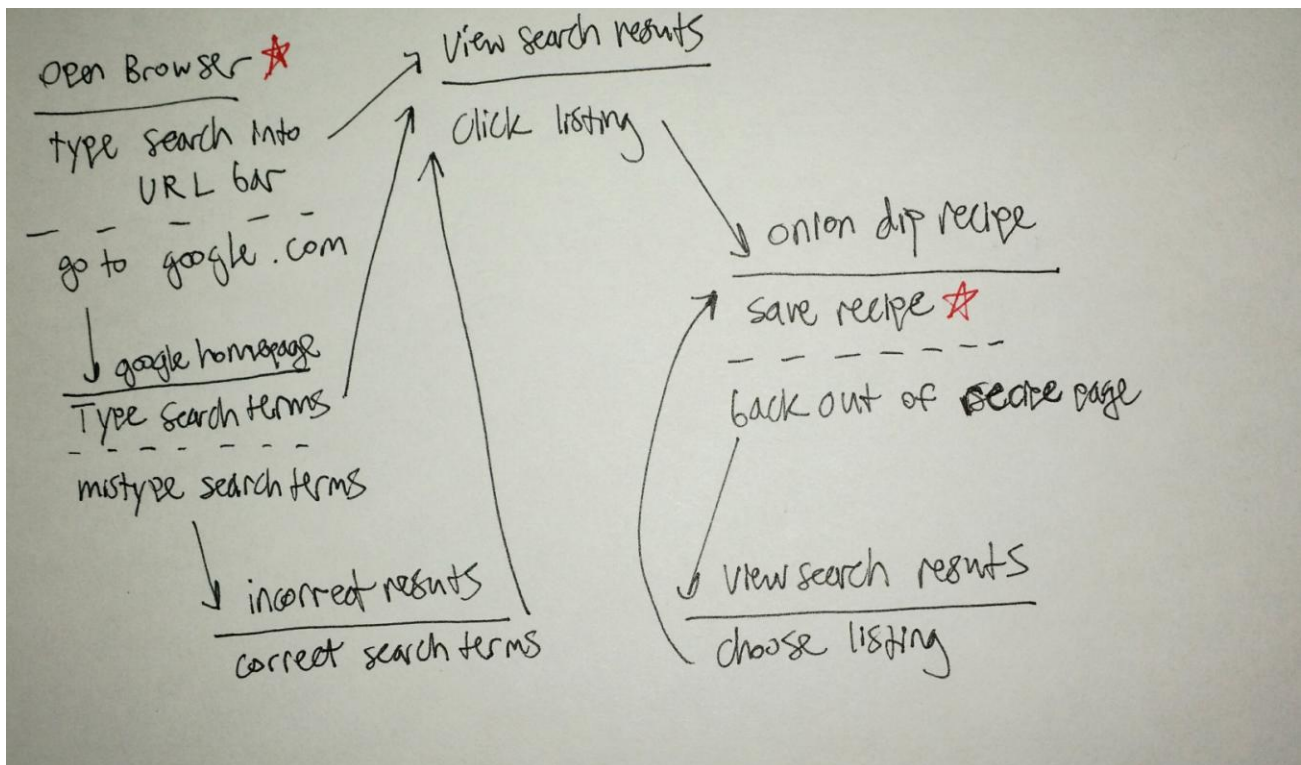 Open Browser
type search into
URL bar
go to google.com
google homepage
Type search terms
mistype search terms
incorrect results
correct search terms
View search results
click listing
onion dip recipe
save recipe
back out of recipe page
view search results
choose listing